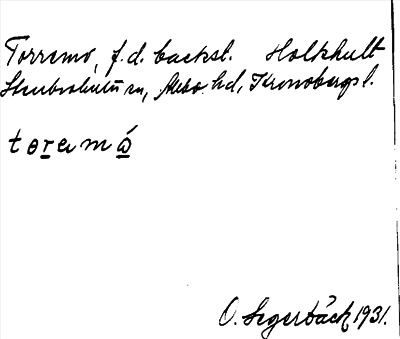 Torremo, f.d. backst. Holkhult
Stenbrohults sn, Allbo hd, Kronobergs l.
toramó
O. Segerbäck 1931.